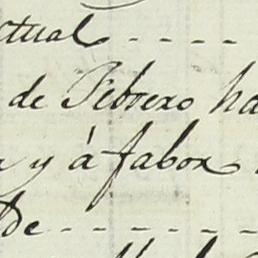 ctual - - - -
de Febrero ha
y á fabor
de - - - - - - -